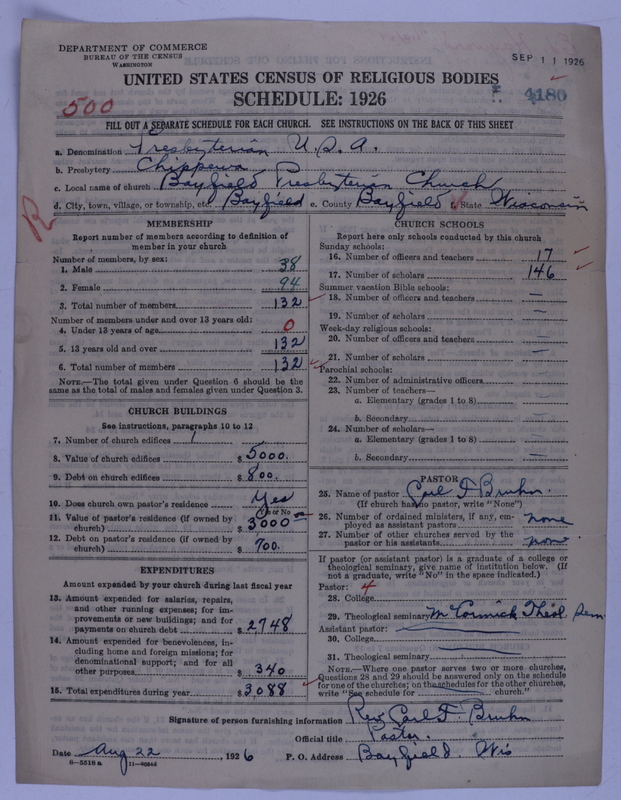 DEPARTMENT OF COMMERCE
BUREAU OF THE CENSUS
WASHINGTON
SEP 11 1926
UNITED STATES CENSUS OF RELIGIOUS BODIES
SCHEDULE: 1926
500
4180
FILL OUT A SEPARATE SCHEDULE FOR EACH CHURCH. SEE INSTRUCTIONS ON THE BACK OF THIS SHEET
a. Denomination Presbyterian U.S.A.
b. Presbytery Chippewa
c. Local name of church Bayfield Presbyterian Church
d. City, town, village, or township, etc. Bayfield e. County Bayfield f. State Wisconsin
R
MEMBERSHIP
Report number of members according to definition of
member in your church
Number of members, by sex:
1. Male 38
2. Female 94
3. Total number of members 132
Number of members under and over 13 years old:
4. Under 13 years of age 0
5. 13 years old and over 132
6. Total number of members 132
NOTE.—The total given under Question 6 should be the
same as the total of males and females given under Question 3.
CHURCH BUILDINGS
See instructions, paragraphs 10 to 12
7. Number of church edifices 1
8. Value of church edifices $5000.
9. Debt on church edifices $800.
10. Does church own pastor's residence Yes
(Yes or No)
11. Value of pastor's residence (if owned by
church) $3000
12. Debt on pastor's residence (if owned by
church) $700.
EXPENDITURES
Amount expended by your church during last fiscal year
13. Amount expended for salaries, repairs,
and other running expenses; for im-
provements or new buildings; and for
payments on church debt $2748
14. Amount expended for benevolences, in-
cluding home and foreign missions; for
denominational support; and for all
other purposes $340
15. Total expenditures during year $3088
CHURCH SCHOOLS
Report here only schools conducted by this church
Sunday schools:
16. Number of officers and teachers 17
17. Number of scholars 146
Summer vacation Bible schools:
18. Number of officers and teachers —
19. Number of scholars —
Week-day religious schools:
20. Number of officers and teachers —
21. Number of scholars —
Parochial schools:
22. Number of administrative officers
23. Number of teachers—
a. Elementary (grades 1 to 8) —
b. Secondary —
24. Number of scholars—
a. Elementary (grades 1 to 8) —
b. Secondary —
PASTOR
25. Name of pastor Carl F Bruhn.
(If church has no pastor, write "None")
26. Number of ordained ministers, if any, em-
ployed as assistant pastors none
27. Number of other churches served by the
pastor or his assistants none
If pastor (or assistant pastor) is a graduate of a college or
theological seminary, give name of institution below. (If
not a graduate, write "No" in the space indicated.)
Pastor: 4
28. College
29. Theological seminary McCormick Theol. Sem
Assistant pastor:
30. College
31. Theological seminary
NOTE.—Where one pastor serves two or more churches,
Questions 28 and 29 should be answered only on the schedule
for one of the churches; on the schedules for the other churches,
write "See schedule for church."
Signature of person furnishing information Rev Carl F. Bruhn
Official title Pastor.
Date Aug 22, 1926 P. O. Address Bayfield. Wis
6—5518a